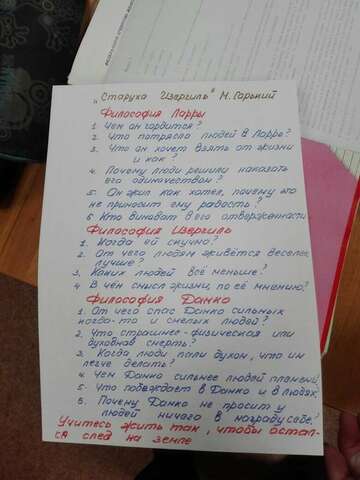 „Старуха Изергиль" М. Горький
Философия Ларры
1. Чем он гордится?
2. Что потрясло людей в Ларре?
3. Что он хочет взять от жизни
и как?
4. Почему люди решили наказать
его одиночеством?
5. Он жил как хотел, почему это
не приносит ему радость?
6. Кто виноват в его отверженности
Философия Изергиль
1. Когда ей скучно?
2. От чего людям живётся веселее,
лучше?
3. Каких людей всё меньше?
4. В чём смысл жизни, по её мнению?
Философия Данко
1. От чего спас Данко сильных
когда-то и смелых людей?
2. Что страшнее - физическая или
духовная смерть?
3. Когда люди пали духом, что им
легче делать?
4. Чем Данко сильнее людей племени,
5. Что побеждает в Данко и в людях,
6. Почему Данко не просит у
людей ничего в награду себе?
Учитесь жить так, чтобы остал-
ся след на земле